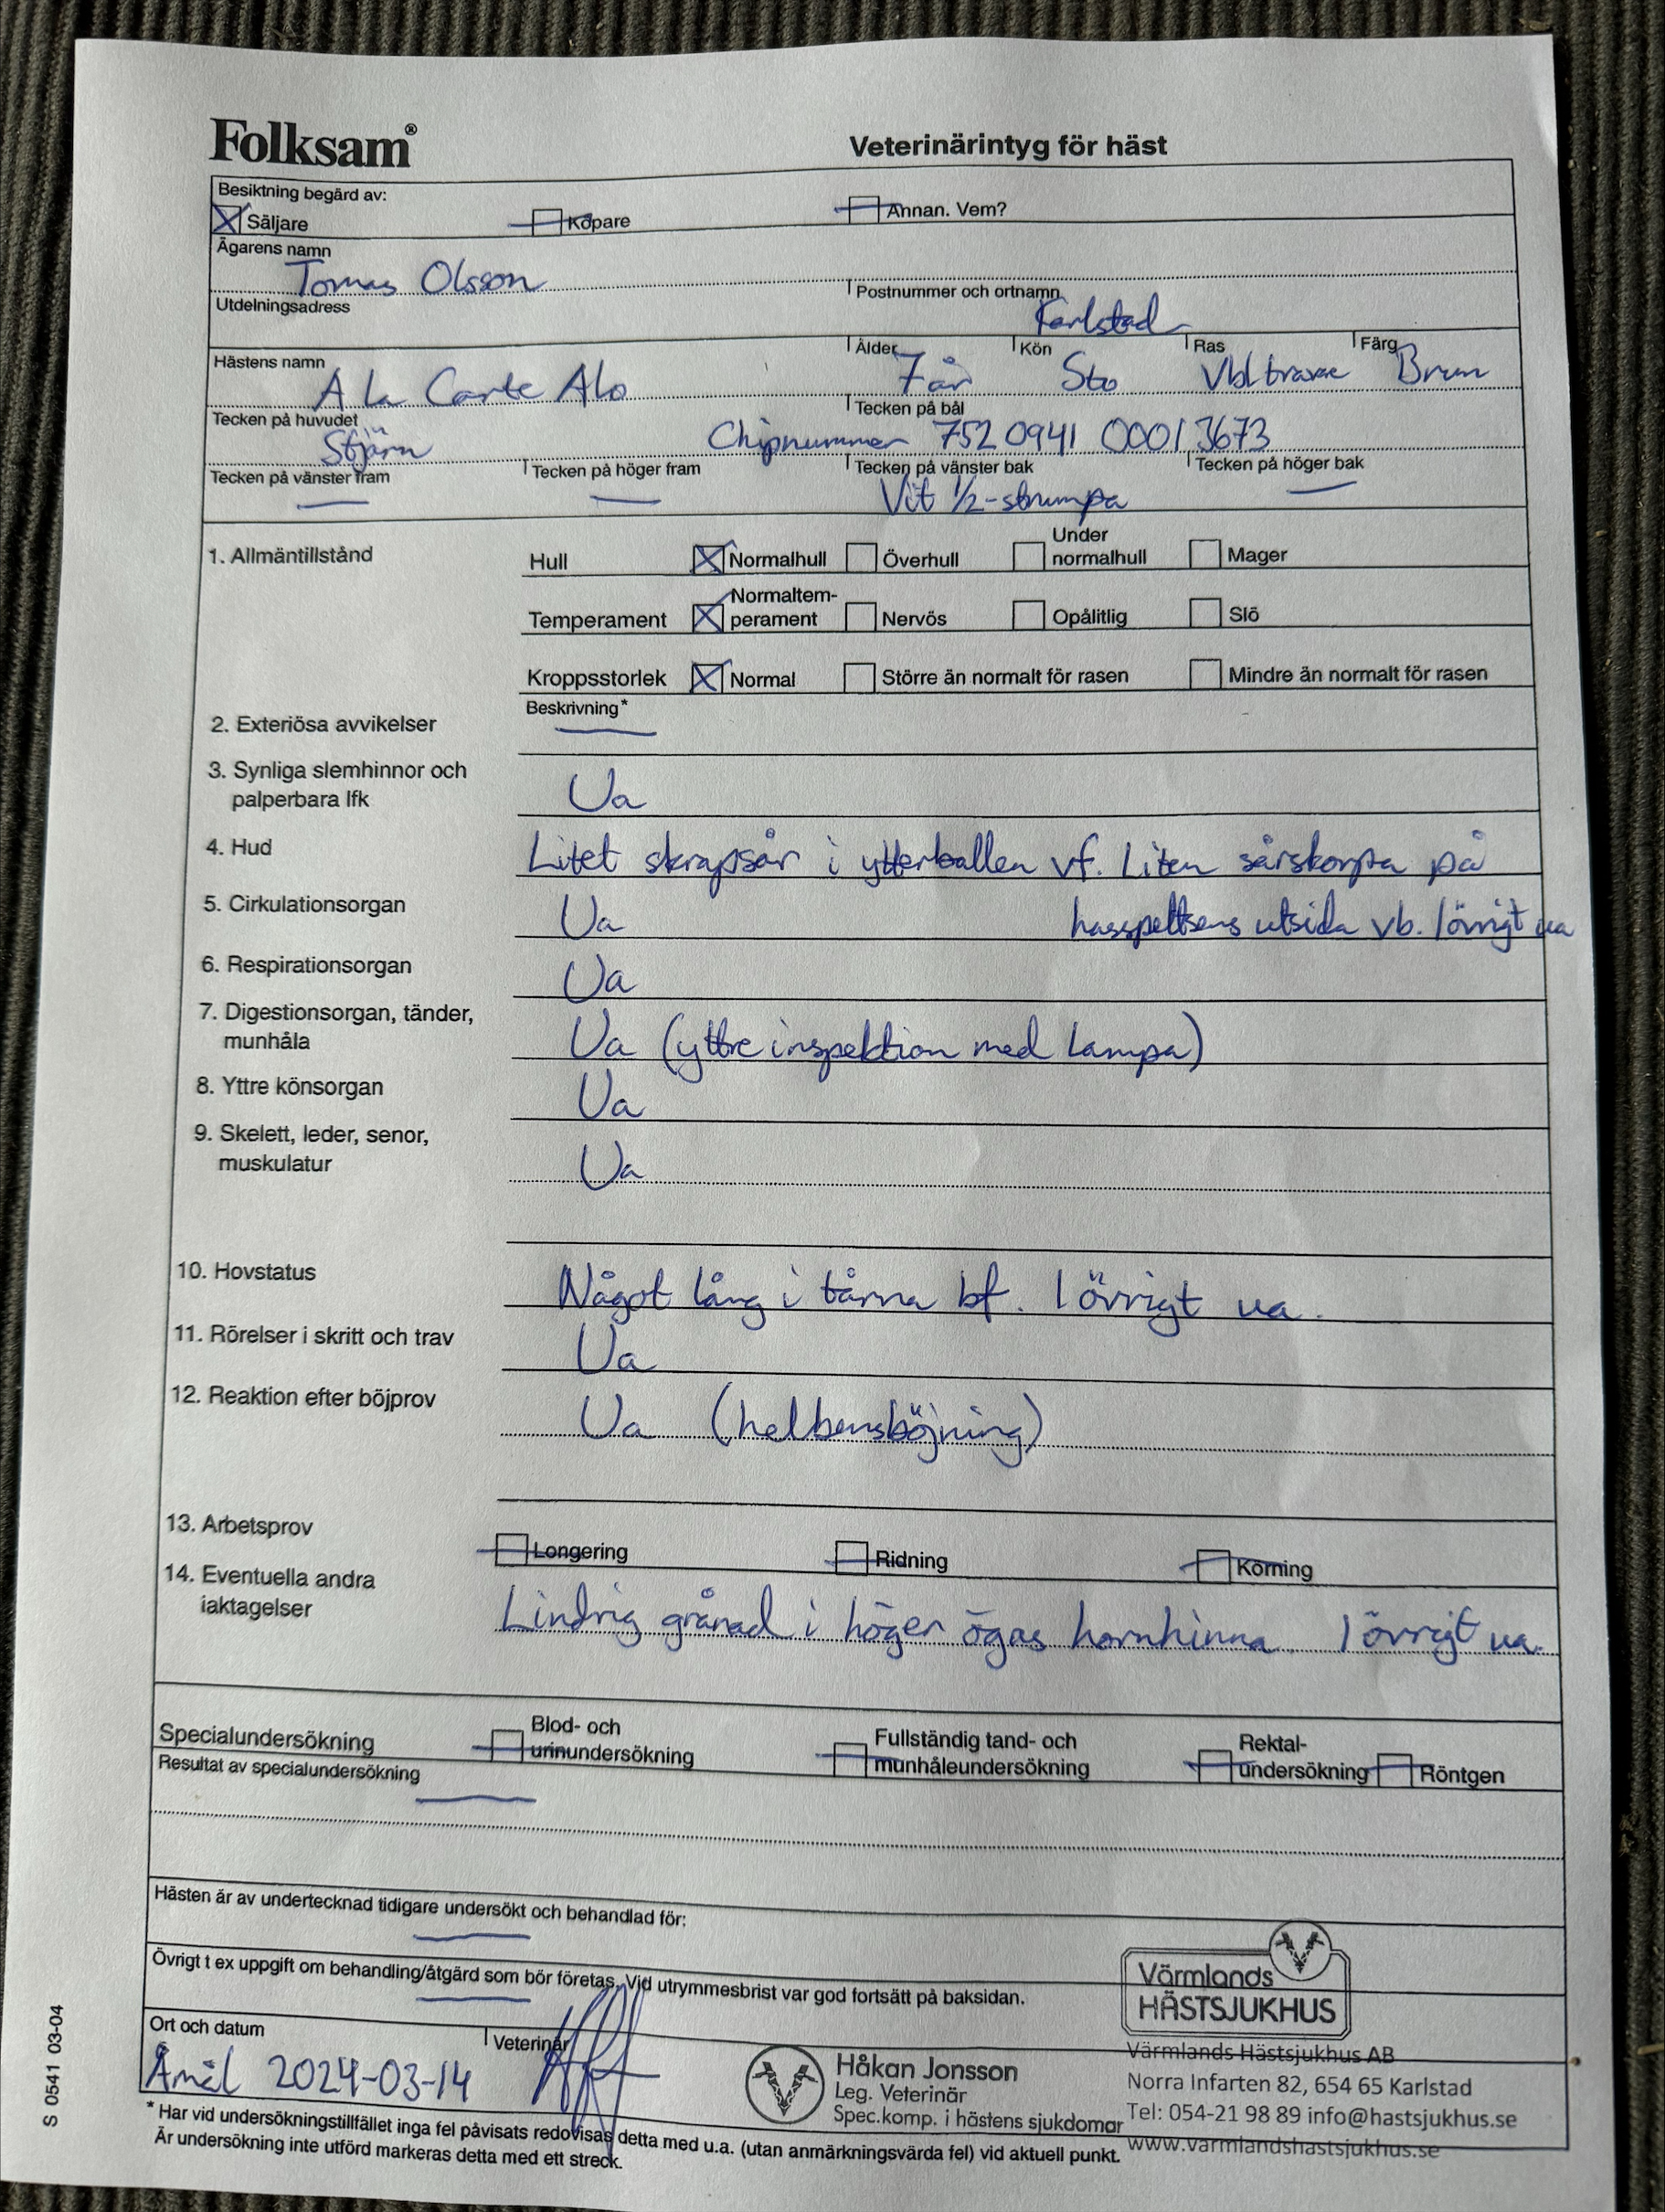 Folksam®
Veterinärintyg för häst
Besiktning begärd av:
Säljare Köpare Annan. Vem?
Ägarens namn
Tomas Olsson
Utdelningsadress Postnummer och ortnamn
Karlstad
Hästens namn Ålder Kön Ras Färg
A la Carte Alo 7 år Sto Vbl travare Brun
Tecken på huvudet Tecken på bål
Stjärn Chipnummer 752 0941 0001 3673
Tecken på vänster fram Tecken på höger fram Tecken på vänster bak Tecken på höger bak
Vit 1/2-strumpa
1. Allmäntillstånd Hull Normalhull Överhull Under normalhull Mager
Temperament Normaltem-perament Nervös Opålitlig Slö
Kroppsstorlek Normal Större än normalt för rasen Mindre än normalt för rasen
Beskrivning*
2. Exteriösa avvikelser
3. Synliga slemhinnor och
palperbara lfk Ua
4. Hud Litet skrapsår i ytterballen vf. Liten sårskorpa på
5. Cirkulationsorgan Ua hasspetsens utsida vb. I övrigt ua
6. Respirationsorgan Ua
7. Digestionsorgan, tänder,
munhåla Ua (yttre inspektion med lampa)
8. Yttre könsorgan Ua
9. Skelett, leder, senor,
muskulatur Ua
10. Hovstatus Något lång i tårna bf. I övrigt ua.
11. Rörelser i skritt och trav Ua
12. Reaktion efter böjprov Ua (helbensböjning)
13. Arbetsprov Longering Ridning Körning
14. Eventuella andra
iaktagelser Lindrig grånad i höger ögas hornhinna. I övrigt ua.
Specialundersökning Blod- och urinundersökning Fullständig tand- och munhåleundersökning Rektal-undersökning Röntgen
Resultat av specialundersökning
Hästen är av undertecknad tidigare undersökt och behandlad för:
Övrigt t ex uppgift om behandling/åtgärd som bör företas. Vid utrymmesbrist var god fortsätt på baksidan.
Värmlands
HÄSTSJUKHUS
Ort och datum Veterinär
Åmål 2024-03-14
Håkan Jonsson
Leg. Veterinär
Spec.komp. i hästens sjukdomar
Värmlands Hästsjukhus AB
Norra Infarten 82, 654 65 Karlstad
Tel: 054-21 98 89 info@hastsjukhus.se
www.varmlandshastsjukhus.se
* Har vid undersökningstillfället inga fel påvisats redovisas detta med u.a. (utan anmärkningsvärda fel) vid aktuell punkt.
Är undersökning inte utförd markeras detta med ett streck.
S 0541 03-04